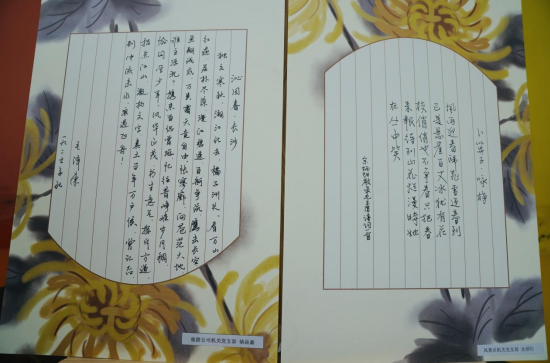 沁园春·长沙
独立寒秋，湘江北去，橘子洲头。看万山
红遍，层林尽染；漫江碧透，百舸争流。鹰击长空，
鱼翔浅底，万类霜天竞自由。怅寥廓，问苍茫大地，
谁主沉浮？携来百侣曾游，忆往昔峥嵘岁月稠。
恰同学少年，风华正茂；书生意气，挥斥方遒。
指点江山，激扬文字，粪土当年万户侯。曾记否，
到中流击水，浪遏飞舟？
毛泽东
一九二五年秋
公司机关党支部
卜算子 咏梅
风雨送春归飞雪迎春到
已是悬崖百丈冰犹有花
枝俏俏也不争春只把春
来报待到山花烂漫时她
在丛中笑
毛主席诗词一首
公司机关党支部